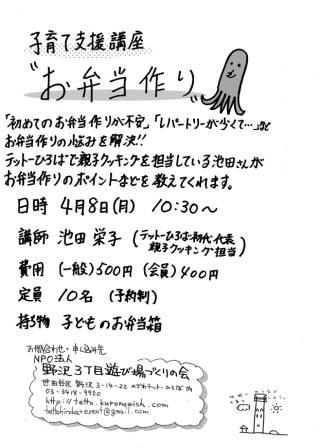 子育て支援講座
"お弁当作り"
「初めてのお弁当作りが不安」「レパートリーが少くて…」など
お弁当作りの悩みを解決!!
テットーひろばで親子クッキングを担当している池田さんが
お弁当作りのポイントなどを教えてくれます。
日時 4月8日(月) 10:30～
講師 池田 栄子 (テットーひろば初代代表
親子クッキング担当)
費用 (一般)500円 (会員)400円
定員 10名 (予約制)
持ち物 子どものお弁当箱
お問合わせ・申し込み先
NPO法人
野沢3丁目遊び場づくりの会
世田谷区 野沢 3-14-22 のざわテットーひろば内
03-3418-9980
http://tetto.kuronowish.com